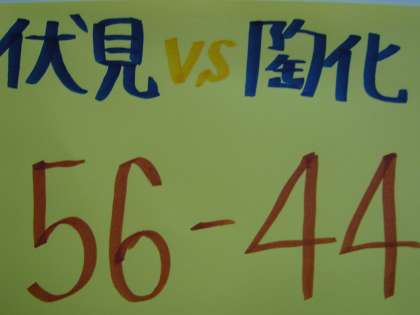 伏見 VS 陶化
56-44